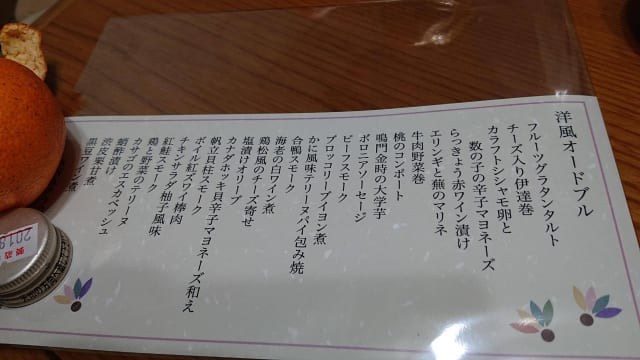 洋風オードブル
フルーツグラタンタルト
チーズ入り伊達巻
カラフトシシャモ卵と
数の子の辛子マヨネーズ
らっきょう赤ワイン漬け
エリンギと蕪のマリネ
牛肉野菜巻
桃のコンポート
鳴門金時の大学芋
ボロニアソーセージ
ビーフスモーク
ブロッコリーブイヨン煮
かに風味テリーヌパイ包み焼
合鴨スモーク
海老の白ワイン煮
鶏松風のチーズ寄せ
塩漬けオリーブ
カナダホッキ貝辛子マヨネーズ和え
帆立貝柱スモーク
ボイル紅ズワイ棒肉
チキンサラダ柚子風味
紅鮭スモーク
鶏と野菜のテリーヌ
カサゴのエスカベッシュ
蛸酢漬け
渋皮栗甘煮
黒豆ワイン煮